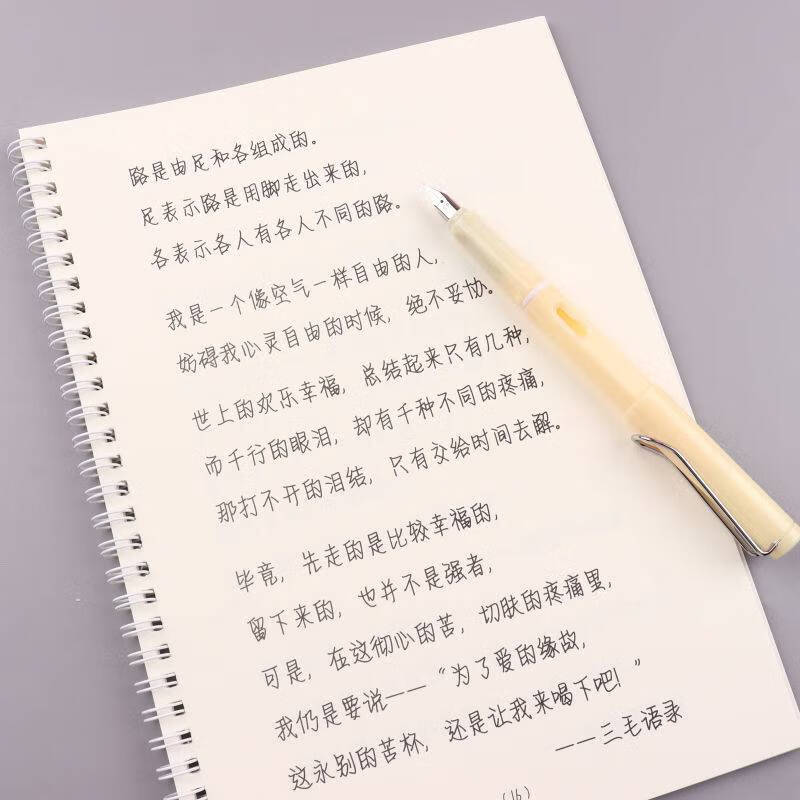 路是由足和各组成的。
足表示路是用脚走出来的，
各表示各人有各人不同的路。
我是一个像空气一样自由的人，
妨碍我心灵自由的时候，绝不妥协。
世上的欢乐幸福，总结起来只有几种，
而千行的眼泪，却有千种不同的疼痛，
那打不开的泪结，只有交给时间去解。
毕竟，先走的是比较幸福的，
留下来的，也并不是强者，
可是，在这彻心的苦，切肤的疼痛里，
我仍是要说——“为了爱的缘故，
这永别的苦杯，还是让我来喝下吧！”
——三毛语录
(16)